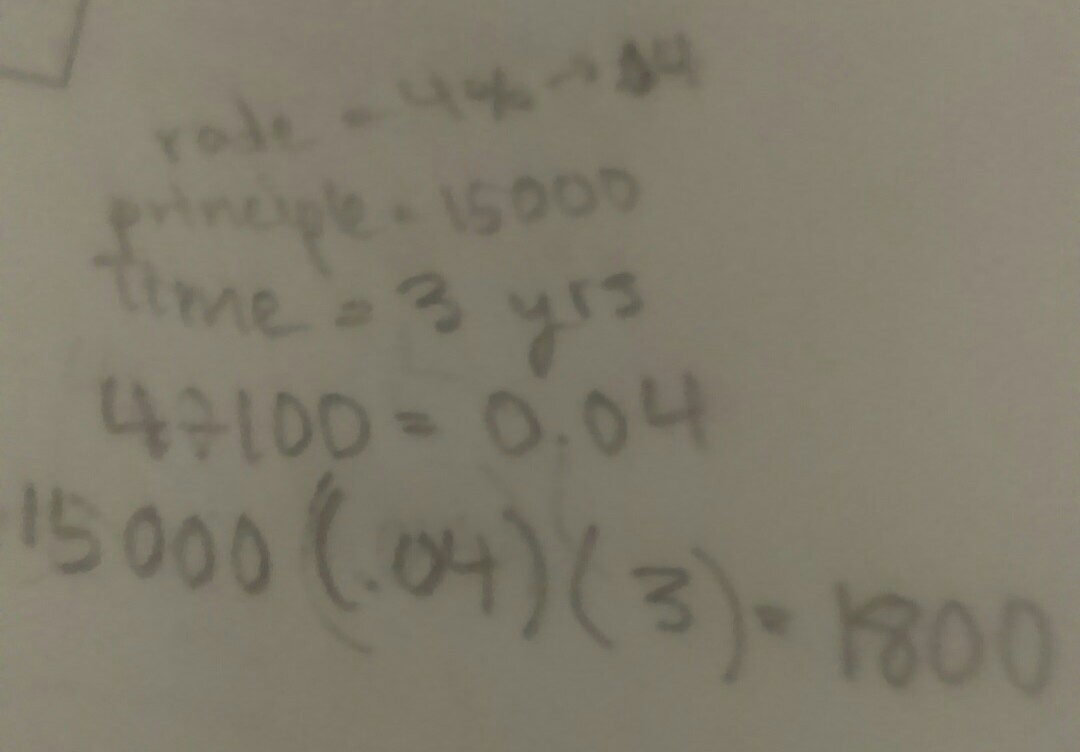 rate = 4% → .04
principle = 15000
time = 3 yrs
4÷100 = 0.04
15000 (.04)(3) = 1800